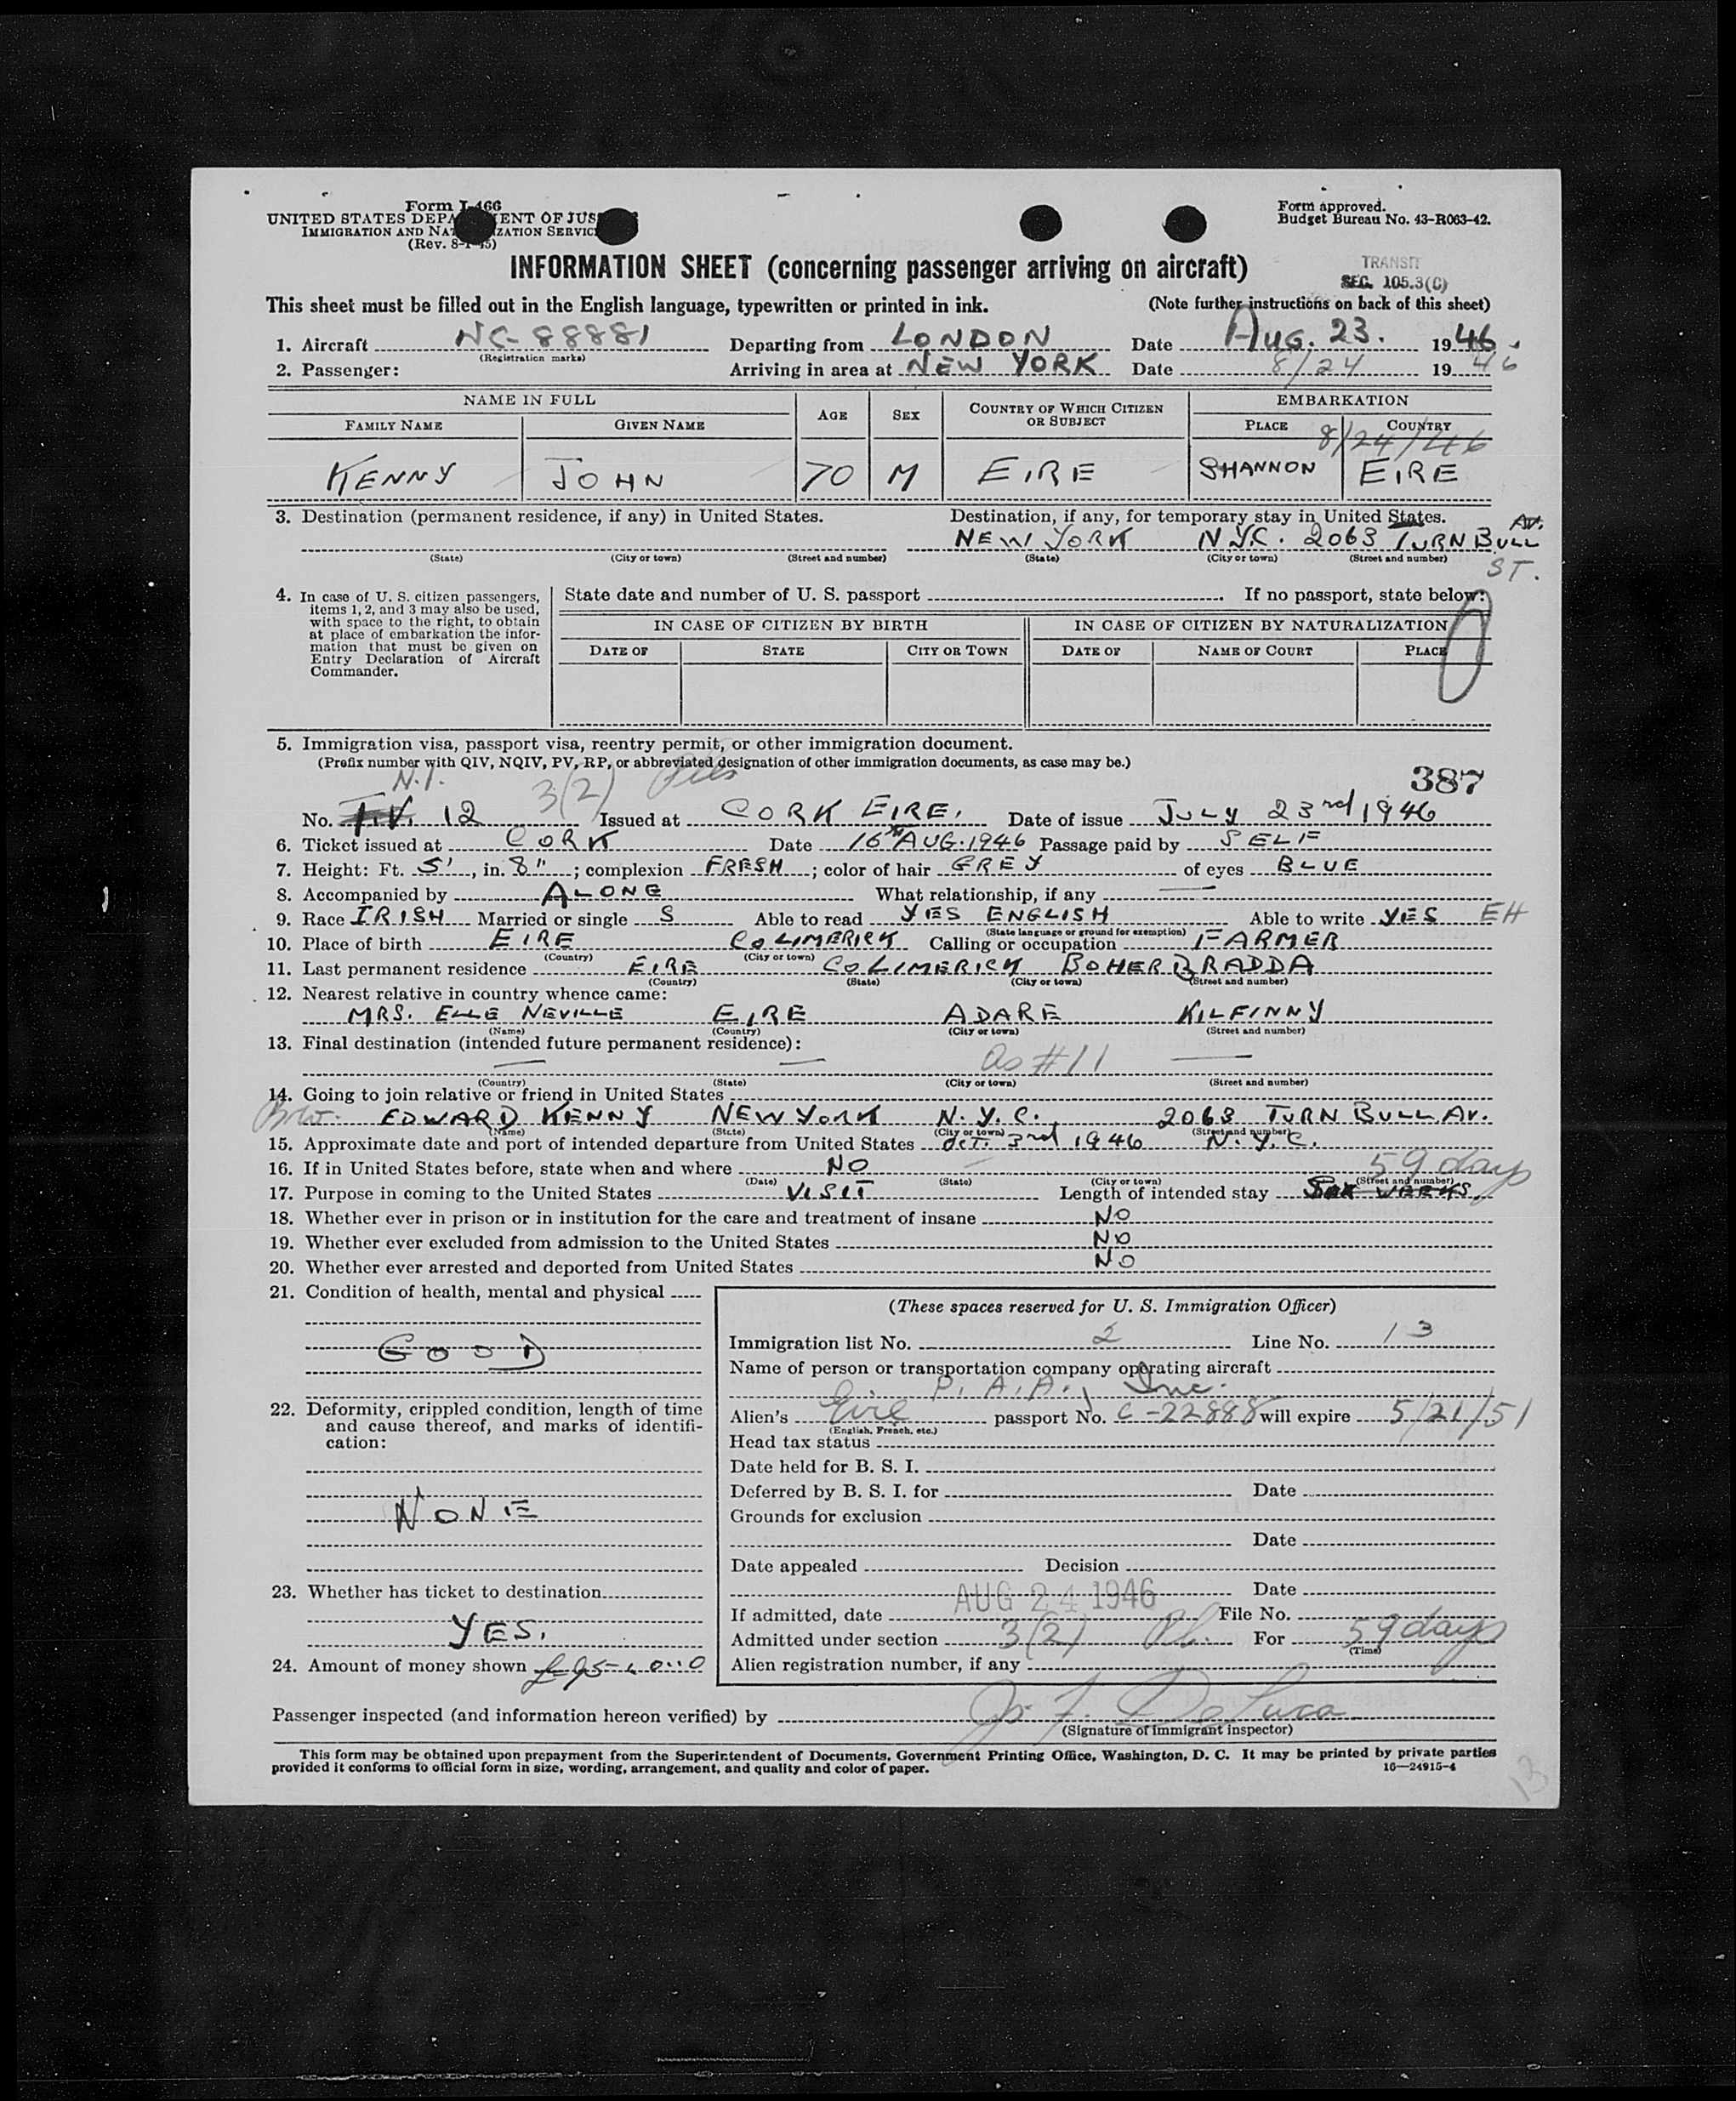 Form I-466
UNITED STATES DEPA ENT OF JUS
IMMIGRATION AND NAT IZATION SERVIC
(Rev. 8-1-45)
Form approved.
Budget Bureau No. 43-R063-42.
INFORMATION SHEET (concerning passenger arriving on aircraft)
TRANSIT
SEC. 105.3(C)
This sheet must be filled out in the English language, typewritten or printed in ink. (Note further instructions on back of this sheet)
1. Aircraft NC-88881 Departing from LONDON Date AUG. 23. 1946.
(Registration marks)
2. Passenger: Arriving in area at NEW YORK Date 8/24 1946
NAME IN FULL AGE SEX COUNTRY OF WHICH CITIZEN OR SUBJECT EMBARKATION
FAMILY NAME GIVEN NAME PLACE COUNTRY
8/24/46
KENNY JOHN 70 M EIRE SHANNON EIRE
3. Destination (permanent residence, if any) in United States. Destination, if any, for temporary stay in United States. AV.
NEW YORK N.Y.C. 2063 TURN BULL
(State) (City or town) (Street and number) (State) (City or town) (Street and number)
ST.
4. In case of U. S. citizen passengers, items 1, 2, and 3 may also be used, with space to the right, to obtain at place of embarkation the information that must be given on Entry Declaration of Aircraft Commander.
State date and number of U. S. passport . If no passport, state below:
IN CASE OF CITIZEN BY BIRTH IN CASE OF CITIZEN BY NATURALIZATION
DATE OF STATE CITY OR TOWN DATE OF NAME OF COURT PLACE
5. Immigration visa, passport visa, reentry permit, or other immigration document.
(Prefix number with QIV, NQIV, PV, RP, or abbreviated designation of other immigration documents, as case may be.)
387
N.I. 3(2)
No. T.V. 12 Issued at CORK EIRE. Date of issue JULY 23rd 1946
6. Ticket issued at CORK Date 16th AUG. 1946 Passage paid by SELF
7. Height: Ft. 5', in. 8"; complexion FRESH; color of hair GREY of eyes BLUE
8. Accompanied by ALONE What relationship, if any —
9. Race IRISH Married or single S Able to read YES ENGLISH Able to write YES EH
(State language or ground for exemption)
10. Place of birth EIRE CO LIMERICK Calling or occupation FARMER
(Country) (City or town)
11. Last permanent residence EIRE CO LIMERICK BOHERBRADDA
(Country) (State) (City or town) (Street and number)
12. Nearest relative in country whence came:
MRS. ELLE NEVILLE EIRE ADARE KILFINNY
(Name) (Country) (City or town) (Street and number)
13. Final destination (intended future permanent residence):
— — as #11 —
(Country) (State) (City or town) (Street and number)
14. Going to join relative or friend in United States
EDWARD KENNY NEW YORK N.Y.C. 2063 TURN BULL AV.
(Name) (State) (City or town) (Street and number)
15. Approximate date and port of intended departure from United States OCT. 3rd 1946 N.Y.C.
16. If in United States before, state when and where NO
(Date) (State) (City or town) (Street and number)
59 days
17. Purpose in coming to the United States VISIT Length of intended stay SIX WEEKS.
18. Whether ever in prison or in institution for the care and treatment of insane NO
19. Whether ever excluded from admission to the United States NO
20. Whether ever arrested and deported from United States NO
21. Condition of health, mental and physical
GOOD
22. Deformity, crippled condition, length of time and cause thereof, and marks of identification:
NONE
23. Whether has ticket to destination
YES.
24. Amount of money shown £95-0-0
(These spaces reserved for U. S. Immigration Officer)
Immigration list No. 2 Line No. 13
Name of person or transportation company operating aircraft
P. A. A., Inc.
Alien's Eire passport No. C-22888 will expire 5/21/51
(English, French, etc.)
Head tax status
Date held for B. S. I.
Deferred by B. S. I. for Date
Grounds for exclusion
Date
Date appealed Decision
Date
If admitted, date AUG 24 1946 File No.
Admitted under section 3(2) For 59 days
(Time)
Alien registration number, if any
Passenger inspected (and information hereon verified) by J. F. DeLuca
(Signature of immigrant inspector)
This form may be obtained upon prepayment from the Superintendent of Documents, Government Printing Office, Washington, D. C. It may be printed by private parties
provided it conforms to official form in size, wording, arrangement, and quality and color of paper. 16—24915-4
13